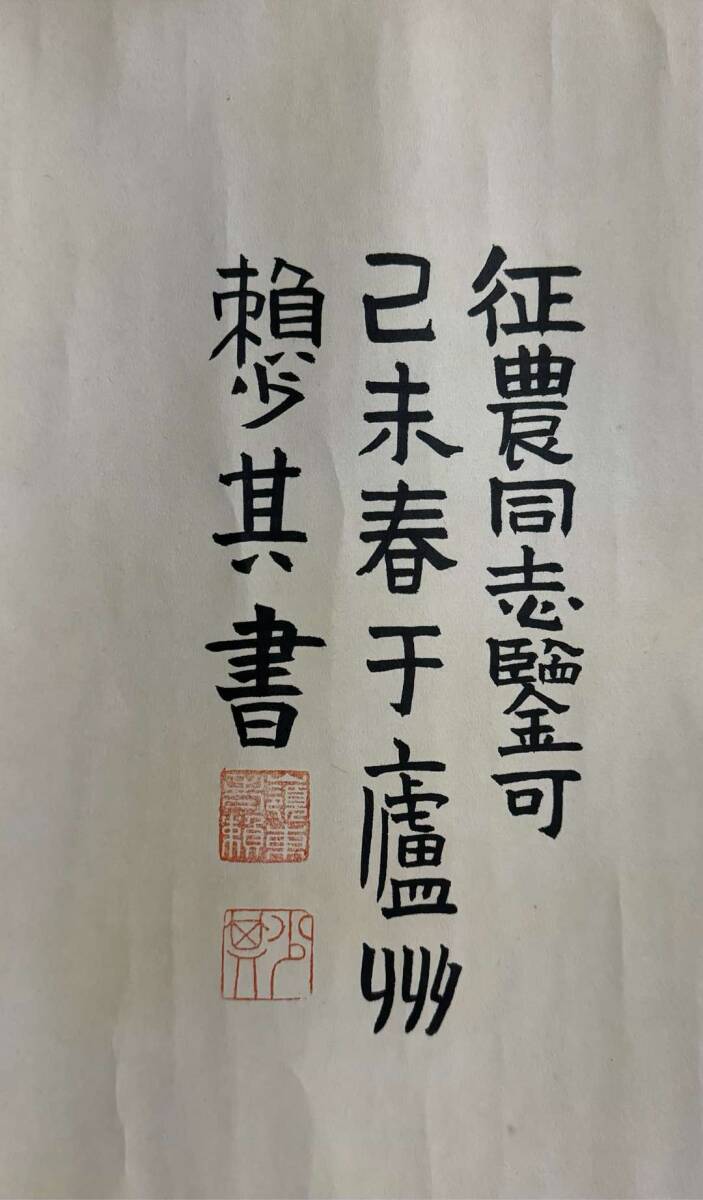 征農同志鑒可
己未春于廬州
賴少其書
少其